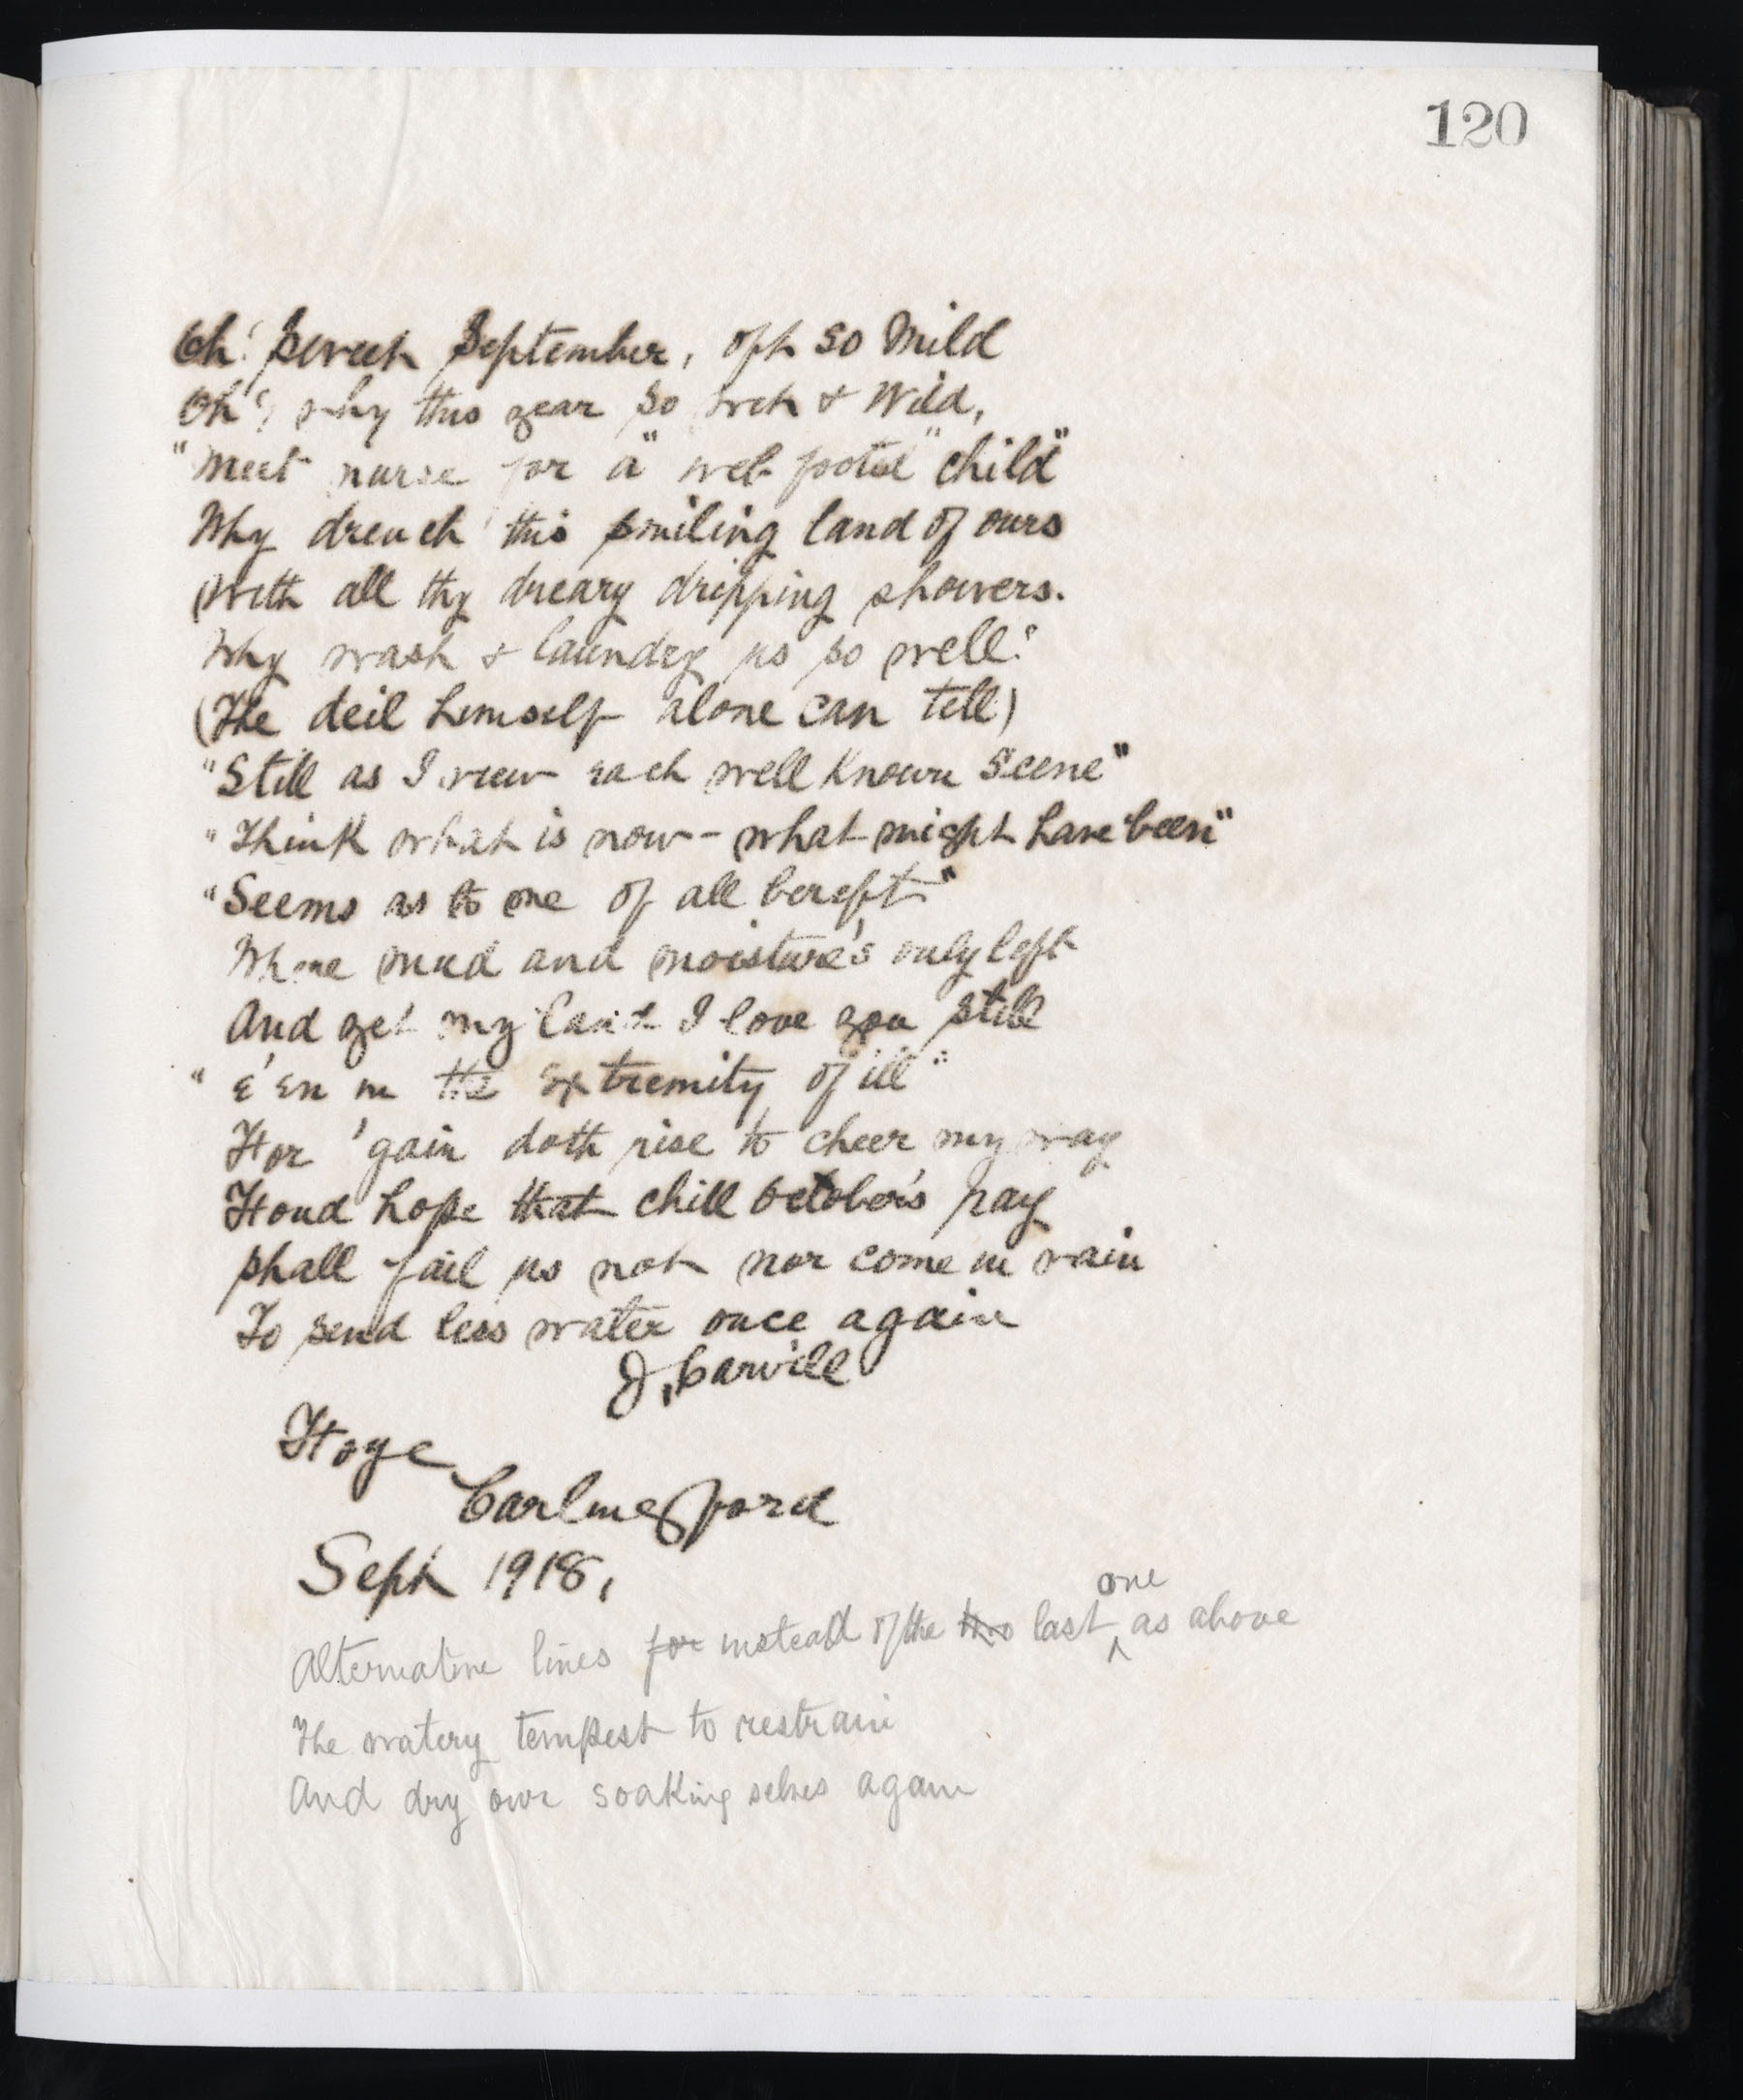 120
Oh! Sweet September, oft so Mild
Oh! why this year so wet & Wild,
"Meet nurse for a" wet footed "child"
Why drench this smiling land of ours
With all thy dreary dripping showers.
Why wash & laundry us so well?
(The deil himself alone can tell)
"Still as I view each well known Scene"
"Think what is now - what might have been"
"Seems as to me of all bereft"
Where mud and moisture's only left
And yet my land I love you still
"E'en in the extremity of ill"
For 'gain doth rise to cheer my way
Fond hope that chill October's ray
Shall fail us not nor come in vain
To send less water once again
J. Carvill
Hoye
Carlingford
Sept 1918.
one
Alternative lines for instead of the two last ^ as above
The watery tempest to restrain
And dry our soaking selves again